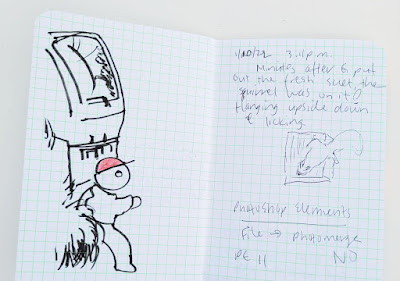 1/20/22 3:11 p.m.
Minutes after I put
out the fresh suet the
squirrel was on it!
Hanging upside down
& licking.
Photoshop Elements
File → photomerge
PE 11 NO